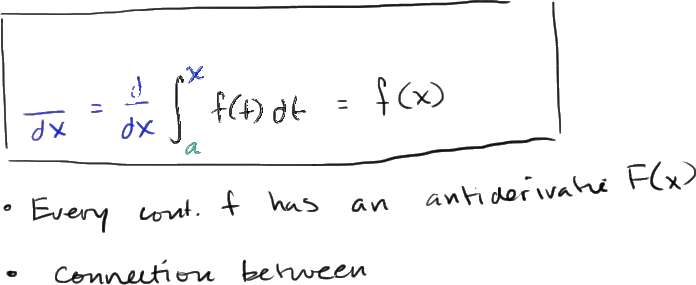 /dx = d/dx ∫_a^x f(t) dt = f(x)
• Every cont. f has an antiderivative F(x)
• connection between